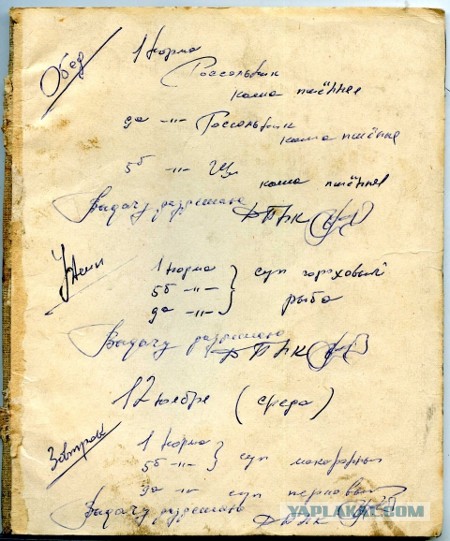 Обед
1 норма
Россольник
каша пшённая
9а -"- Россольник
каша пшённая
5б -"- Щи
каша пшённая
Выдачу разрешаю ДПНК
Ужин
1 норма
5б -"-
9а -"-
суп гороховый
рыба
Выдачу разрешаю
ДПНК
12 ноября (среда)
Завтрак
1 норма
5б -"-
суп макаронный
9а -"- суп перловый
Выдачу разрешаю
ДПНК
YAPLAKAL.COM